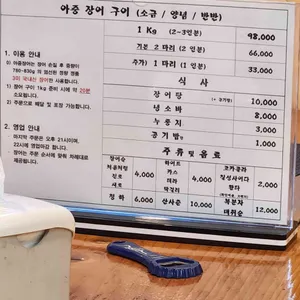 아중 장어 구이 (소금 / 양념 / 반반)
1 Kg (2~3인분) 98,000
기본 2 마리 (2 인분) 66,000
추가 1 마리 (1 인분) 33,000
식 사
장어탕 10,000
냉소바 8,000
누룽지 3,000
공기밥 1,000
주류 및 음료
장어술
처음처럼
진로
새로
4,000
하이트
카스
테라
막걸리
4,000
코카콜라
칠성사이다
환타
2,000
청하 6,000
산사춘 10,000
복분자
매취순
12,000
1. 이용 안내
1) 아중장어는 장어 손질 후 중량이
3미 국내산 장어만 사용합니다.
1) 장어 구이 1kg 준비 시 약 20분
소요됩니다.
2) 주문으로 배달 및 포장 가능합니다.
2. 영업 안내
1) 마지막 주문은 오후 21시이며,
22시에 영업마감 합니다.
2) 장어는 주문 순서에 맞춰 차례대로
제공됩니다.